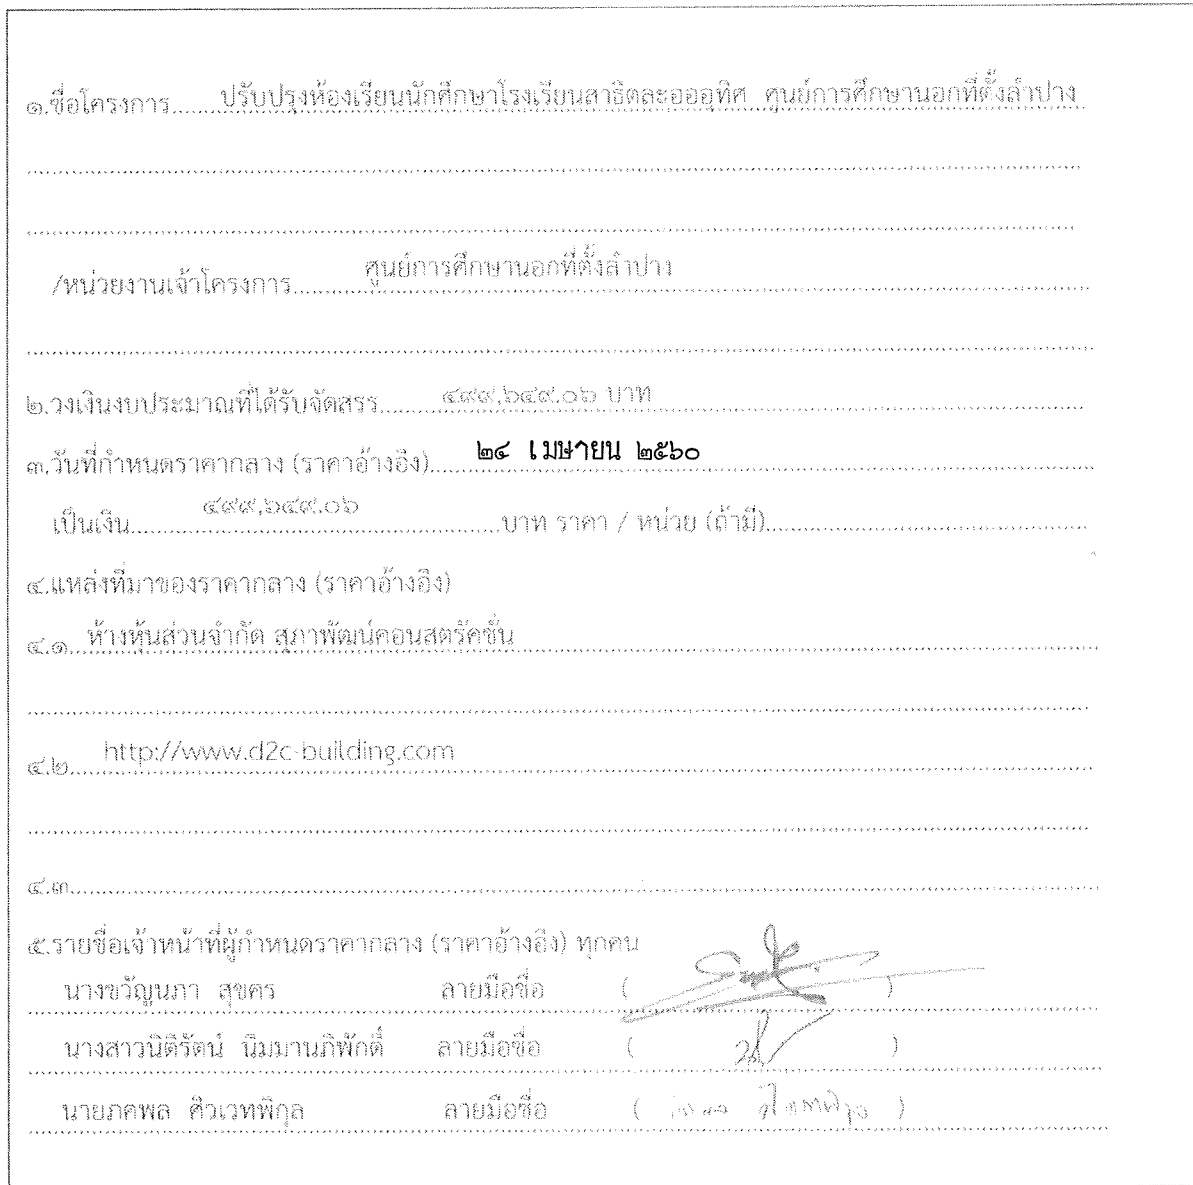 ๑.ชื่อโครงการ.......ปรับปรุงห้องเรียนนักศึกษาโรงเรียนสาธิตละอออุทิศ ศูนย์การศึกษานอกที่ตั้งลำปาง
/หน่วยงานเจ้าโครงการ............ศูนย์การศึกษานอกที่ตั้งลำปาง
๒.วงเงินงบประมาณที่ได้รับจัดสรร.......๔๙๙,๖๔๙.๐๖ บาท
๓.วันที่กำหนดราคากลาง (ราคาอ้างอิง)......๒๔ เมษายน ๒๕๖๐
เป็นเงิน..........๔๙๙,๖๔๙.๐๖..........บาท ราคา / หน่วย (ถ้ามี)..........
๔.แหล่งที่มาของราคากลาง (ราคาอ้างอิง)
๔.๑. ห้างหุ้นส่วนจำกัด สุภาพัฒน์คอนสตรัคชั่น
๔.๒.....http://www.d2c-building.com
๔.๓..........
๕.รายชื่อเจ้าหน้าที่ผู้กำหนดราคากลาง (ราคาอ้างอิง) ทุกคน
นางขวัญนภา สุขคร ลายมือชื่อ ( )
นางสาวนิติรัตน์ นิมมานภิพักดิ์ ลายมือชื่อ ( )
นายภคพล ศิวเวทพิกุล ลายมือชื่อ ( )